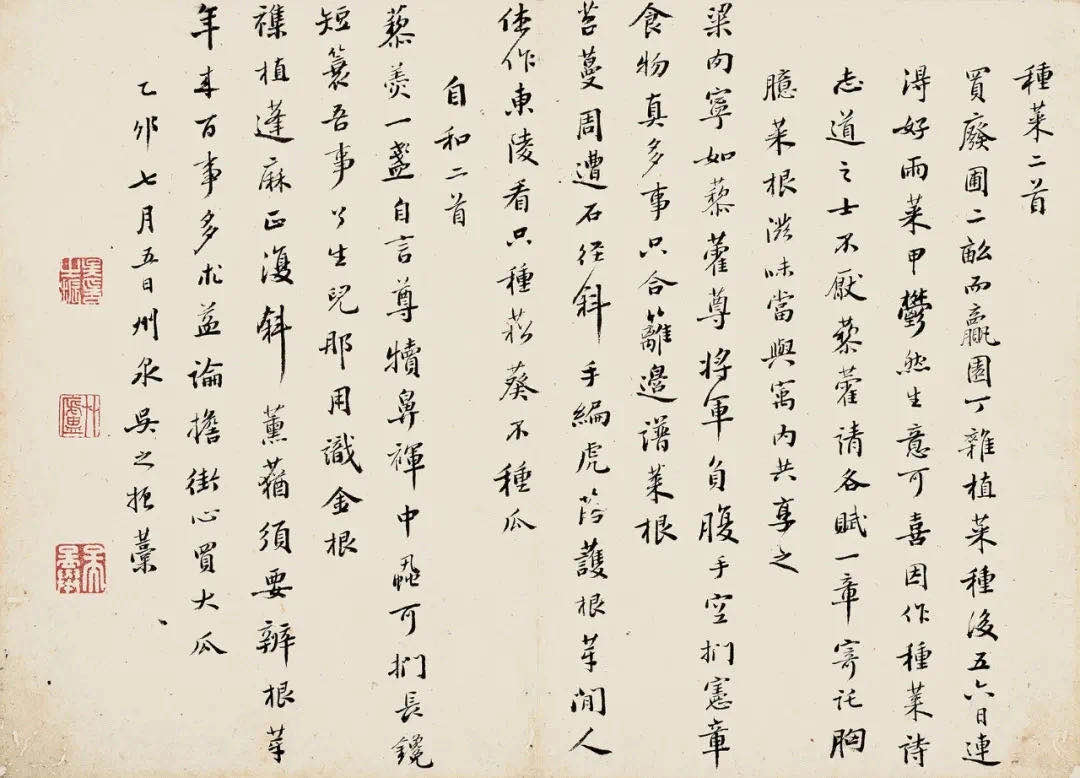 種菜二首
買廢圃二畝而贏園丁雜植菜種後五六日連
得好雨菜甲鬱然生意可喜因作種菜詩
志道之士不厭藜藿請各賦一章寄託胸
臆菜根滋味當與寓內共享之
粱肉寧如藜藿尊將軍負腹手空捫憲章
食物真多事只合籬邊譜菜根
苔蔓周遭石徑斜手編虎落護根芽閒人
使作東陵看只種菘葵不種瓜
自和二首
藜羹一盞自言尊犢鼻褌中虱可捫長鑱
短簑吾事了生兒那用識金根
襍植蓬麻正復斜薰蕕須要辨根芽
年來百事多求益論擔街心買大瓜
乙卯七月五日州泉吳之振藁